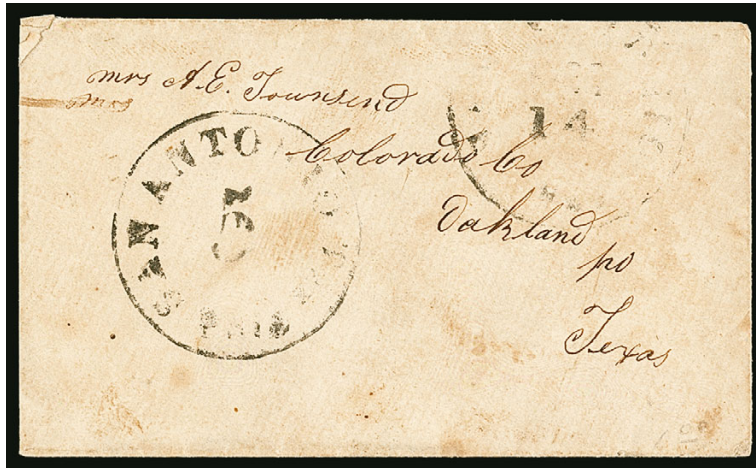 mrs A.E. Townsend
mrs
Colorado Co
Oakland
po
Texas
SAN ANTO
5
PAID
14